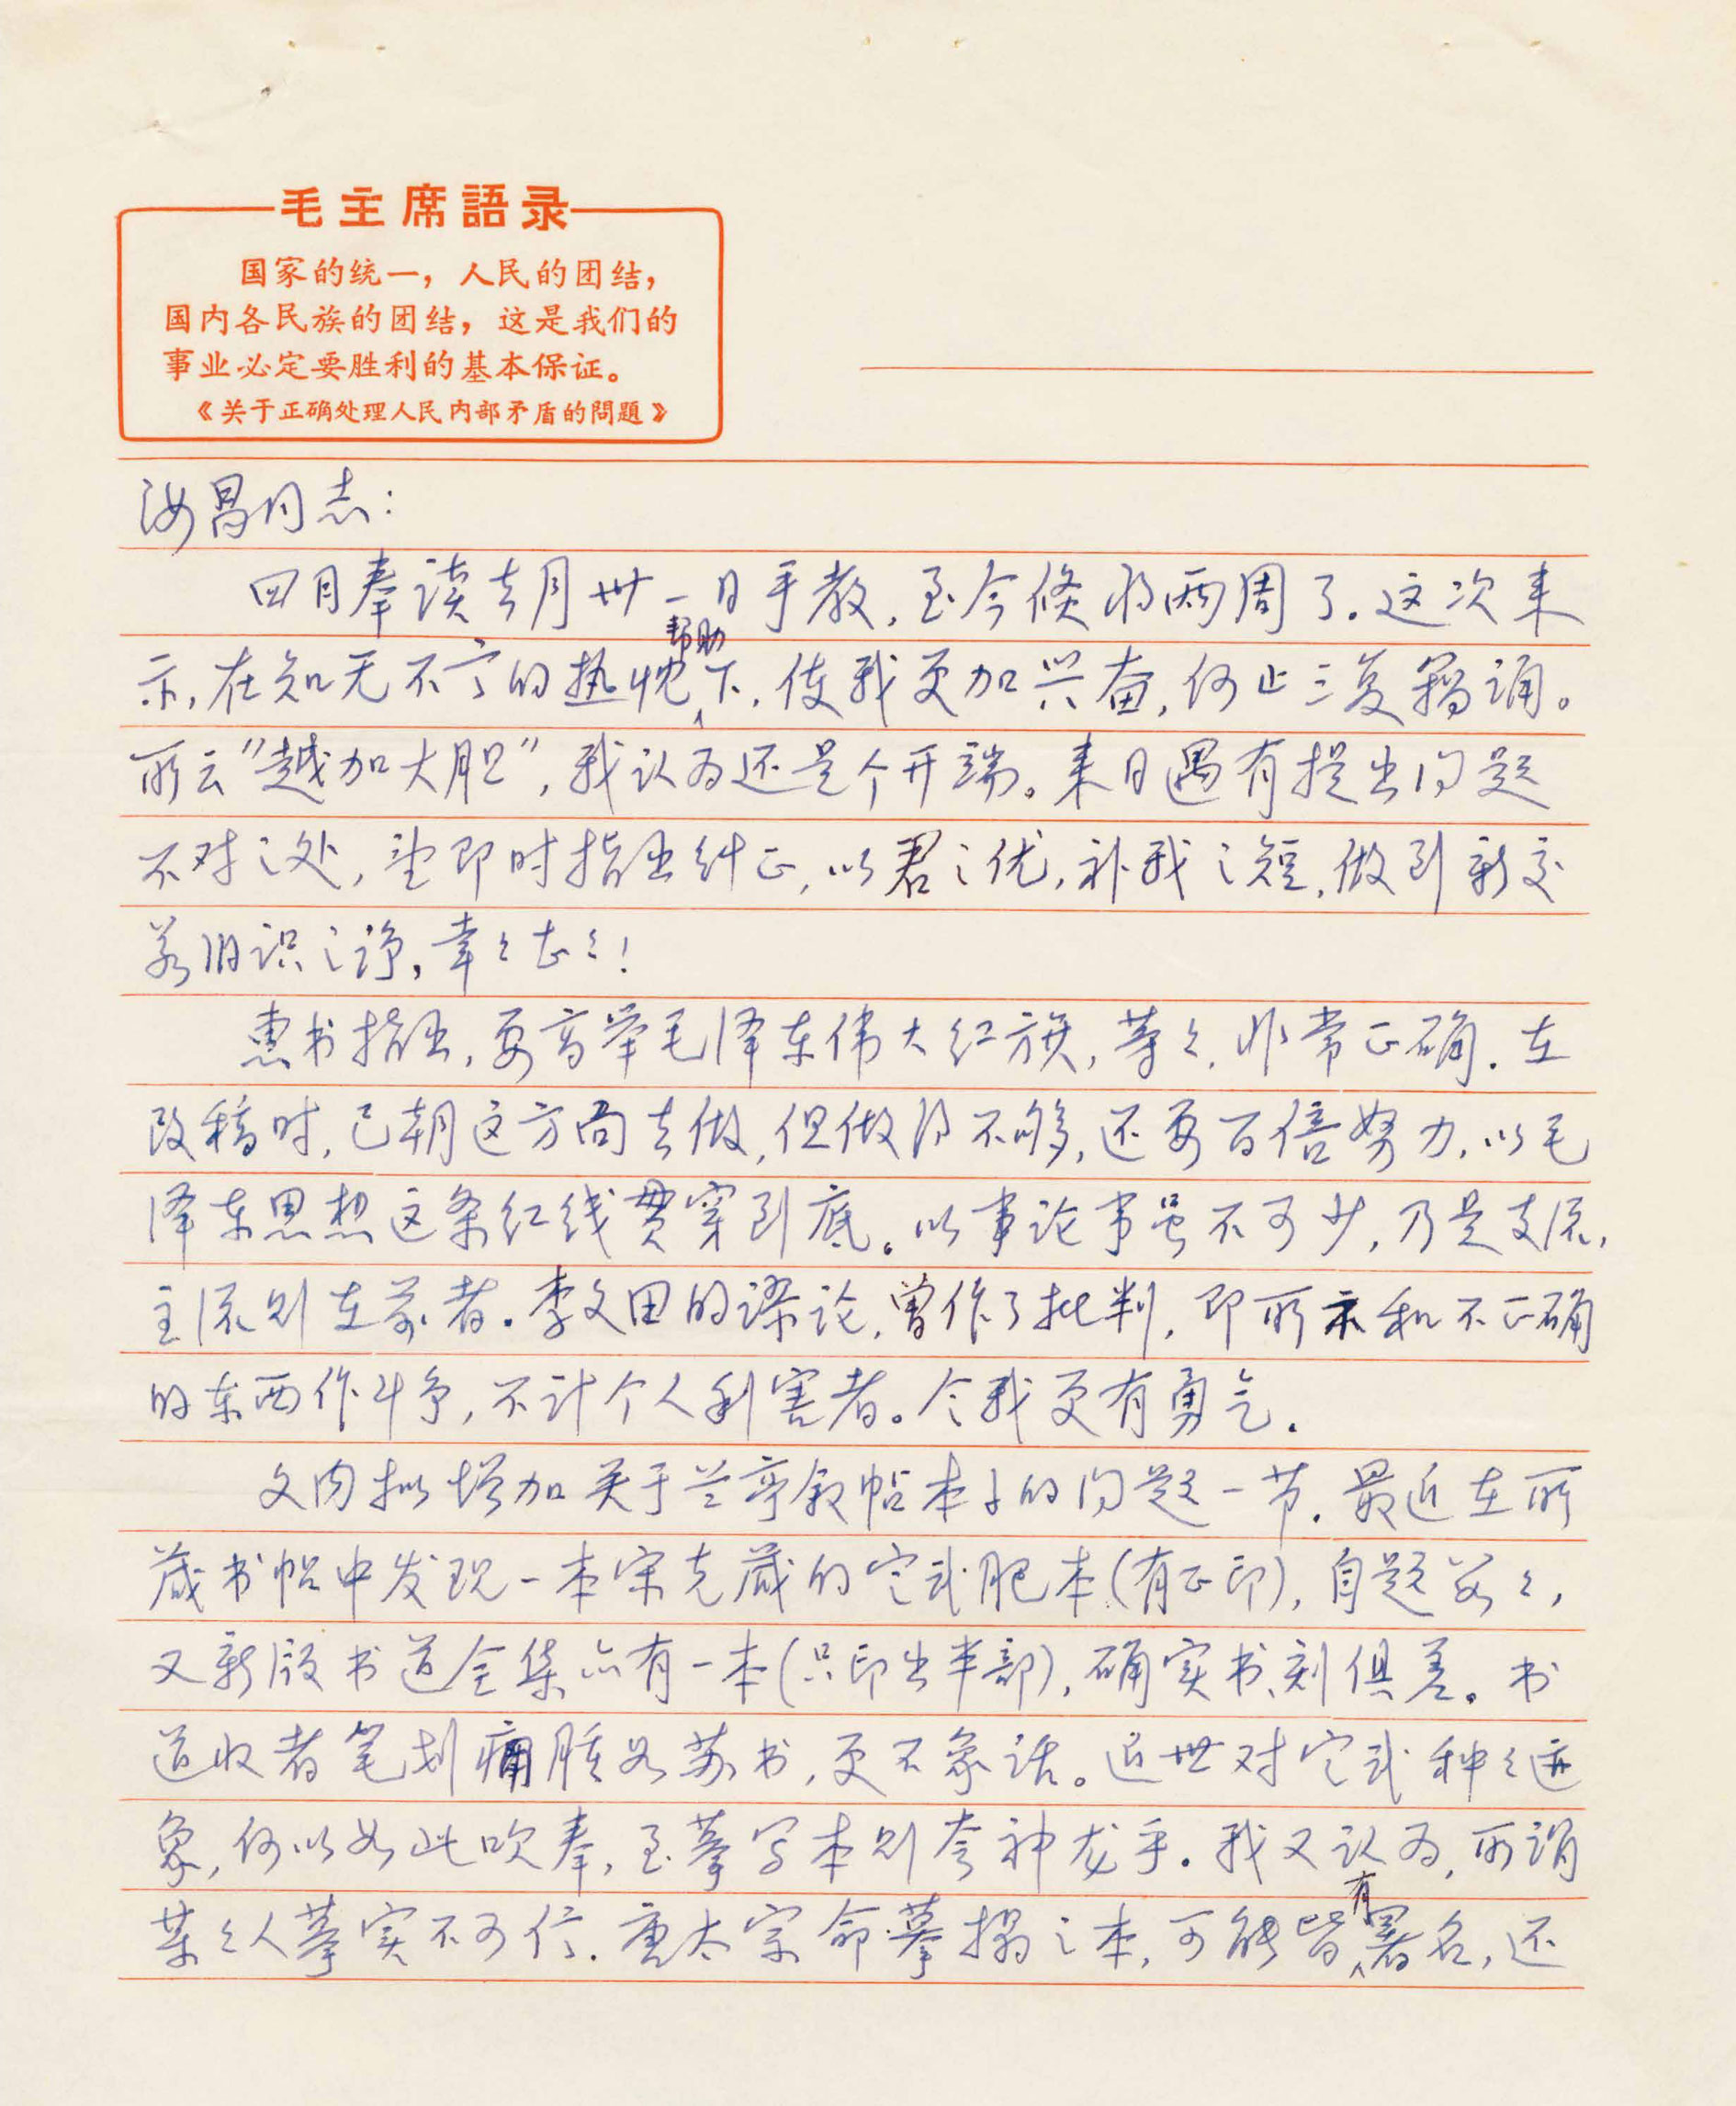 毛主席語录
国家的统一，人民的团结，
国内各民族的团结，这是我们的
事业必定要胜利的基本保证。
《关于正确处理人民内部矛盾的問題》
汝昌同志：
四日奉读去月卅一日手教，至今倏将两周了。这次来
示，在知无不言的热忱帮助下，使我更加兴奋，何止三复籀诵。
所云"越加大胆"，我认为还是个开端。来日遇有提出问题
不对之处，望即时指出纠正，以君之优，补我之短，做到新交
若旧识之诤，幸々甚々！
惠书指出，要高举毛泽东伟大红旗，等々，非常正确。在
改稿时，已朝这方向去做，但做得不够，还要百倍努力，以毛
泽东思想这条红线贯穿到底。以事论事虽不可少，乃是支流，
主流则在前者。李文田的谬论，曾作了批判，即所示和不正确
的东西作斗争，不计个人利害者。令我更有勇气。
文内拟增加关于兰亭叙帖本子的问题一节。最近在所
藏书帖中发现一本宋克藏的定武肥本（有正印），自题若々，
又新版书道全集亦有一本（只印出半部），确实书、刻俱差。书
道收者笔划痈肿如苏书，更不象话。近世对定武种々迹
象，何以如此吹奉，至摹写本则夸神龙乎。我又认为，所谓
某々人摹实不可信。唐太宗命摹搨之本，可能皆有署名，还